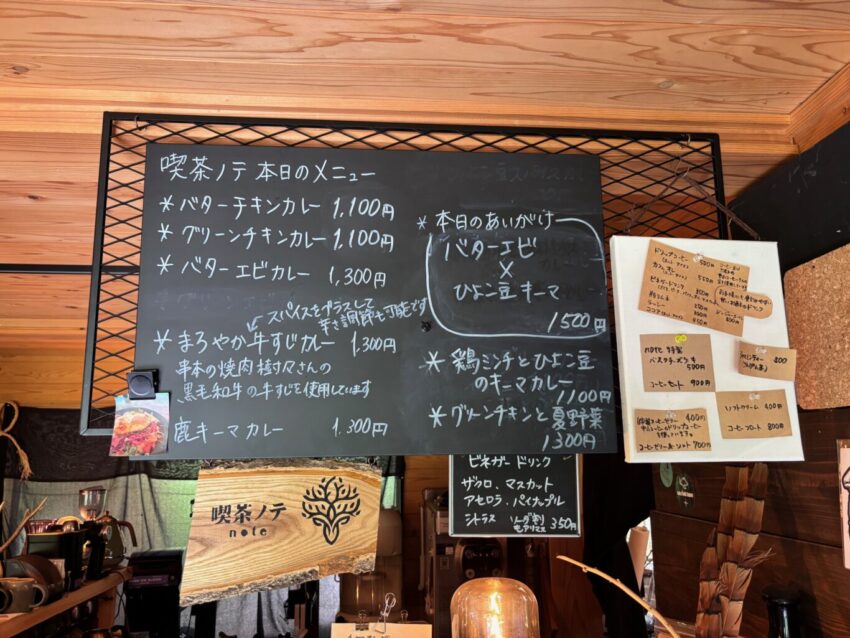 喫茶ノテ 本日のメニュー
* バターチキンカレー 1,100円
* グリーンチキンカレー 1,100円
* バターエビカレー 1,300円
スパイスをプラスして
辛さ調節も可能です
* まろやか牛すじカレー 1,300円
串本の焼肉樹々さんの
黒毛和牛の牛すじを使用しています
鹿キーマカレー 1,300円
* 本日のあいがけ
バターエビ
×
ひよこ豆キーマ
1500円
* 鶏ミンチとひよこ豆
のキーマカレー
1100円
* グリーンチキンと夏野菜
1300円
ドリップコーヒー 500円
カフェオレ 550円
ビネガードリンク
ラッシー
ココア
note 特製
バスクチーズケーキ
500円
コーヒーセット 900円
800
ソフトクリーム 400円
コーヒーフロート 800円
400円
コーヒーゼリー&ソフト 700円
喫茶ノテ
note
ビネガードリンク
ザクロ、マスカット
アセロラ、パイナップル
シトラス ソーダ割
もアリマス 350円